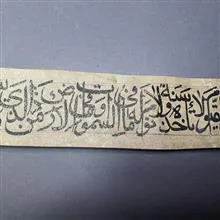 لا تأخذه سنة ولا نوم له ما في السموات وما في الارض من ذا الذي